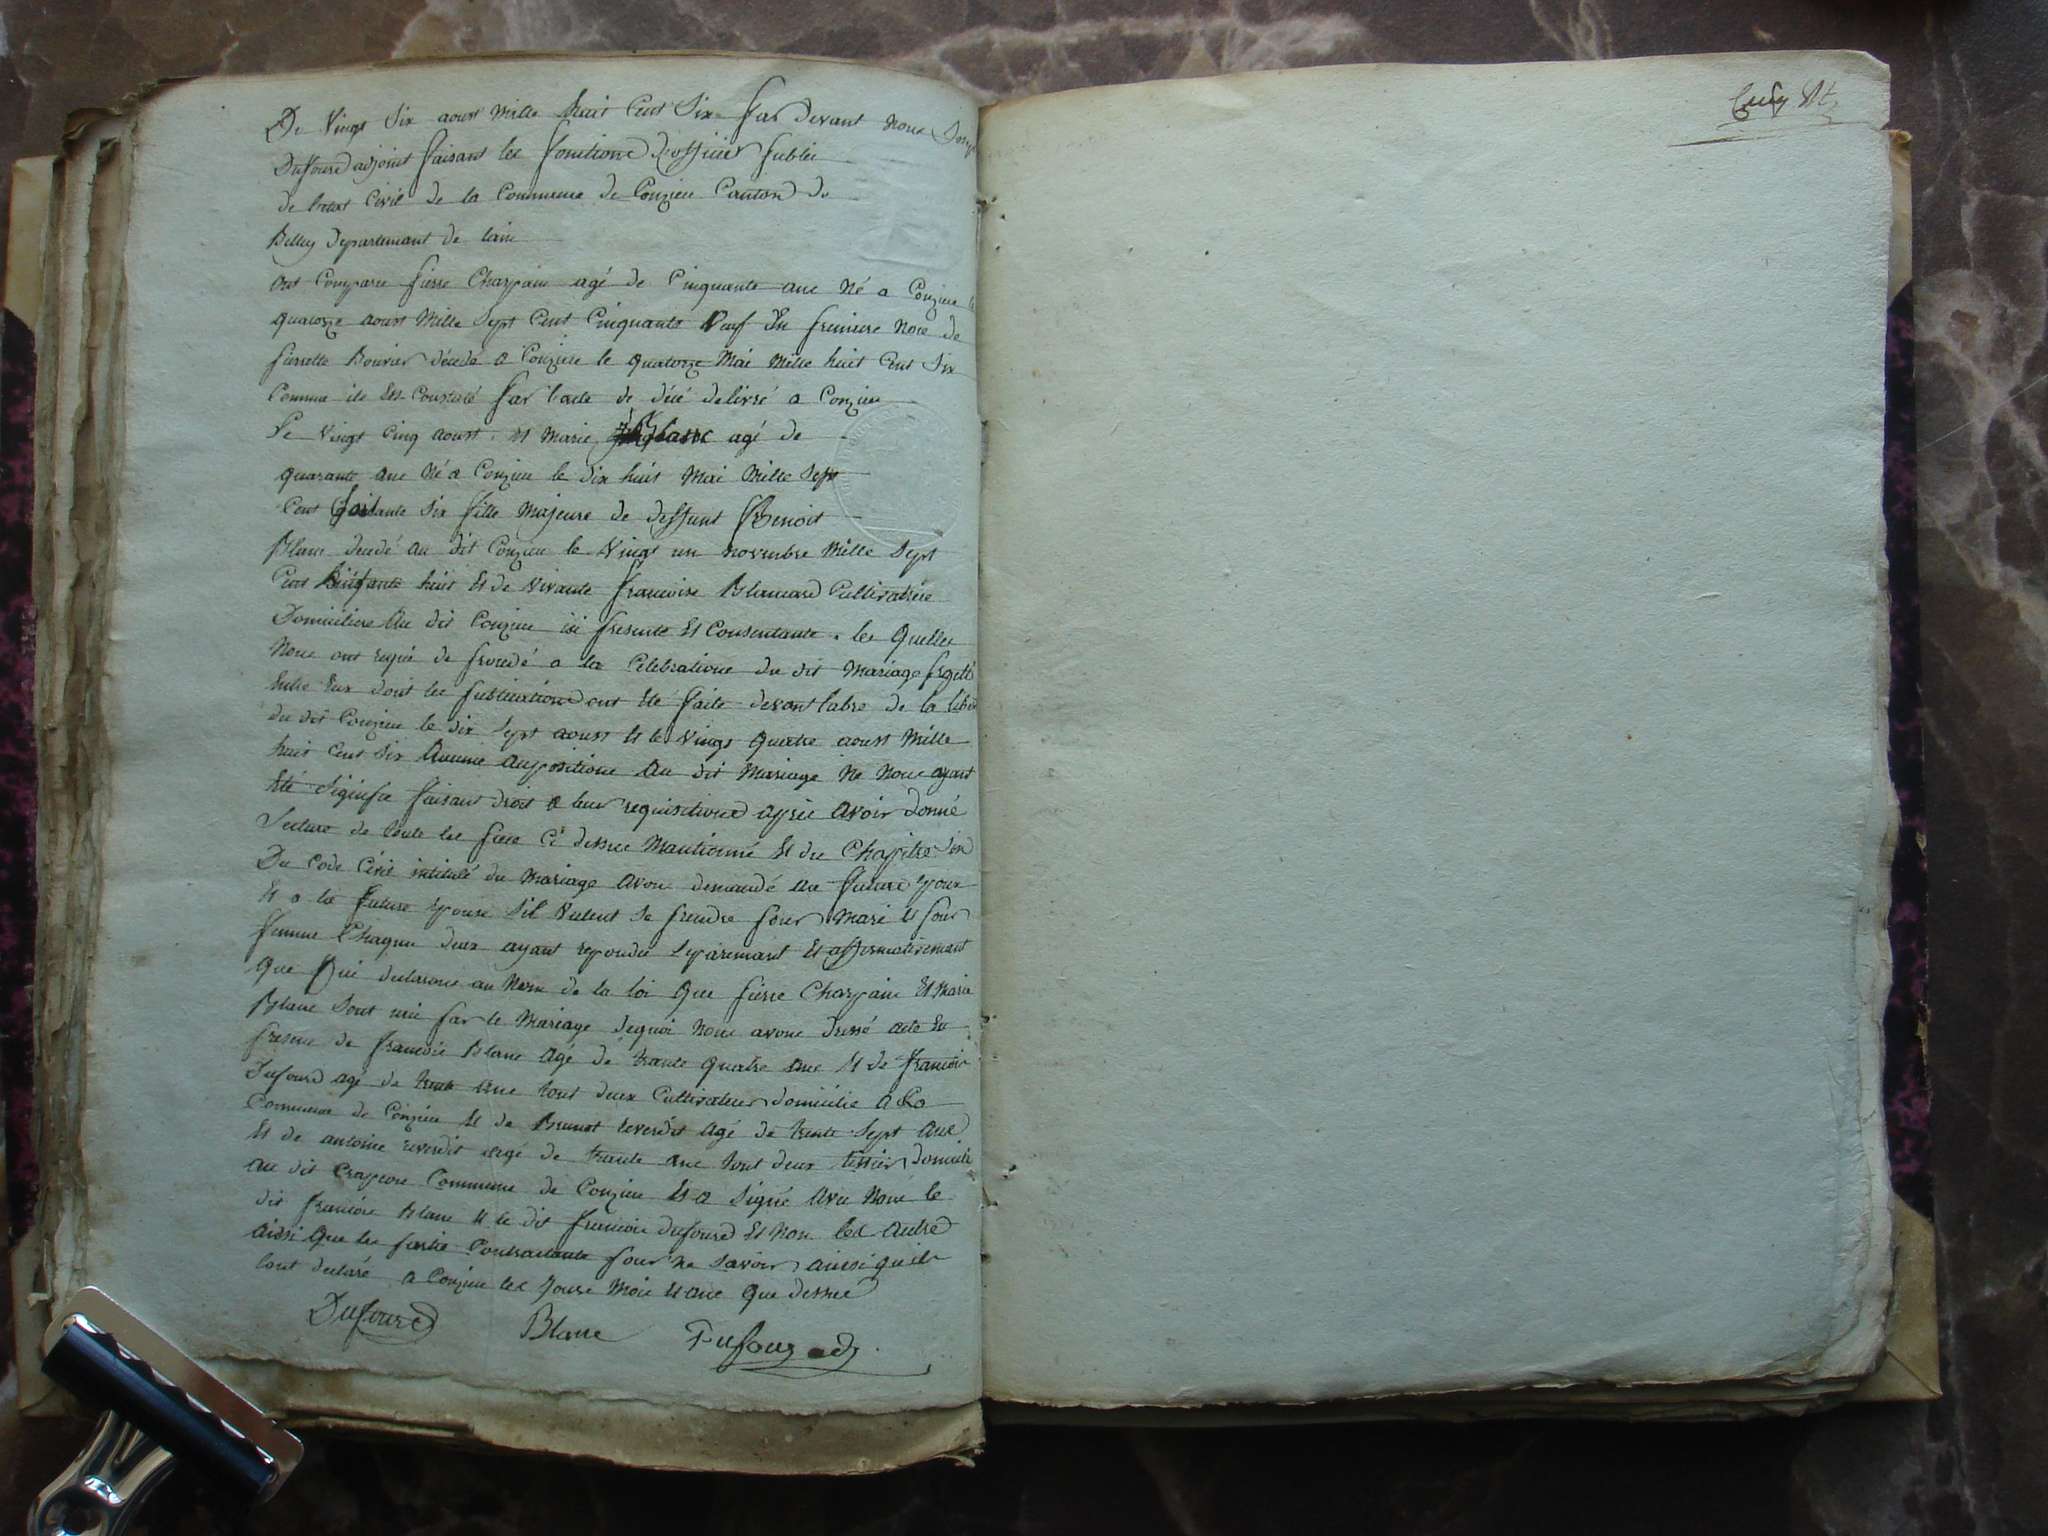 Du Vingt Six aoust Mille huit Cent Six par devant nous
Dufourd adjoint faisant les fonctions d'officier public
de letat Civil de la Commune de Conzieu Canton de
Belley departemant de lain
ont Comparu pierre Charpain agé de Cinquante ans Né a Conzieu le
quatorze aoust Mille Sept Cent Cinquante Neuf En premiere Noce de
pierrette Bouvier décédé a Conzieu le quatorze Mai Mille huit Cent Six
Comme ils Est Constaté par l'acte de décé delivré a Conzieu
Le Vingt Cinq aoust Et Marie Blanc agé de
quarante ans Né a Conzieu le dix huit Mai Mille Sept
Cent Soixante Six fille Majeure de deffunt Benoit
Blanc decedé au dit Conzieu le Vingt un novembre Mille Sept
Cent huit Et de vivante francoise Blancard Cultivatrice
Domiciliere Au dit Conzieu ici presente Et Consentante . les Quelles
Nous ont requis de procedé a la Celebrations du dit Mariage
Entre Eux dont les publications ont Eté faite devant labre de la
du dit Conzieu le dix Sept aoust Et le Vingt Quatre aoust Mille
huit Cent Six Aucune au dit Mariage Ne Nous ayant
Eté Signifie faisant droit a leur requisitions aprés avoir donné
Lecture de toute les piece Ci dessus Mantionné Et du Chapitre Six
Du Code Civil intitulé du Mariage avons demandé au future Epoux
Et a la future Epouse Sil Veulent Se prendre pour Mari Et pour
femme Chaqun deux ayant repondu Separemant Et affirmativemant
Que declarons au Nom de la loi Que pierre Charpain Et Marie
Blanc Sont uni par le Mariage dequoi Nous avons dressé acte En
presence de francois Blanc agé de trante quatre ans Et de francois
Dufourd agé de trente ans tout deux Cultivateur domicilie a La
Commune de Conzieu Et de Brunot reverdit agé de trente Sept ans
Et de antoine reverdit agé de trante ans tout deux tissier domicilie
au dit Crapeou Commune de Conzieu Et a Signé avec Nous le
dit francois Blanc Et le dit francois dufourd Et Non les autre
aissi Que les partie Contractante pour Ne Savoir ainsi quils
lont declaré a Conzieu les Jours Mois Et ans Que dessus
Dufourd Blanc Dufourd adj